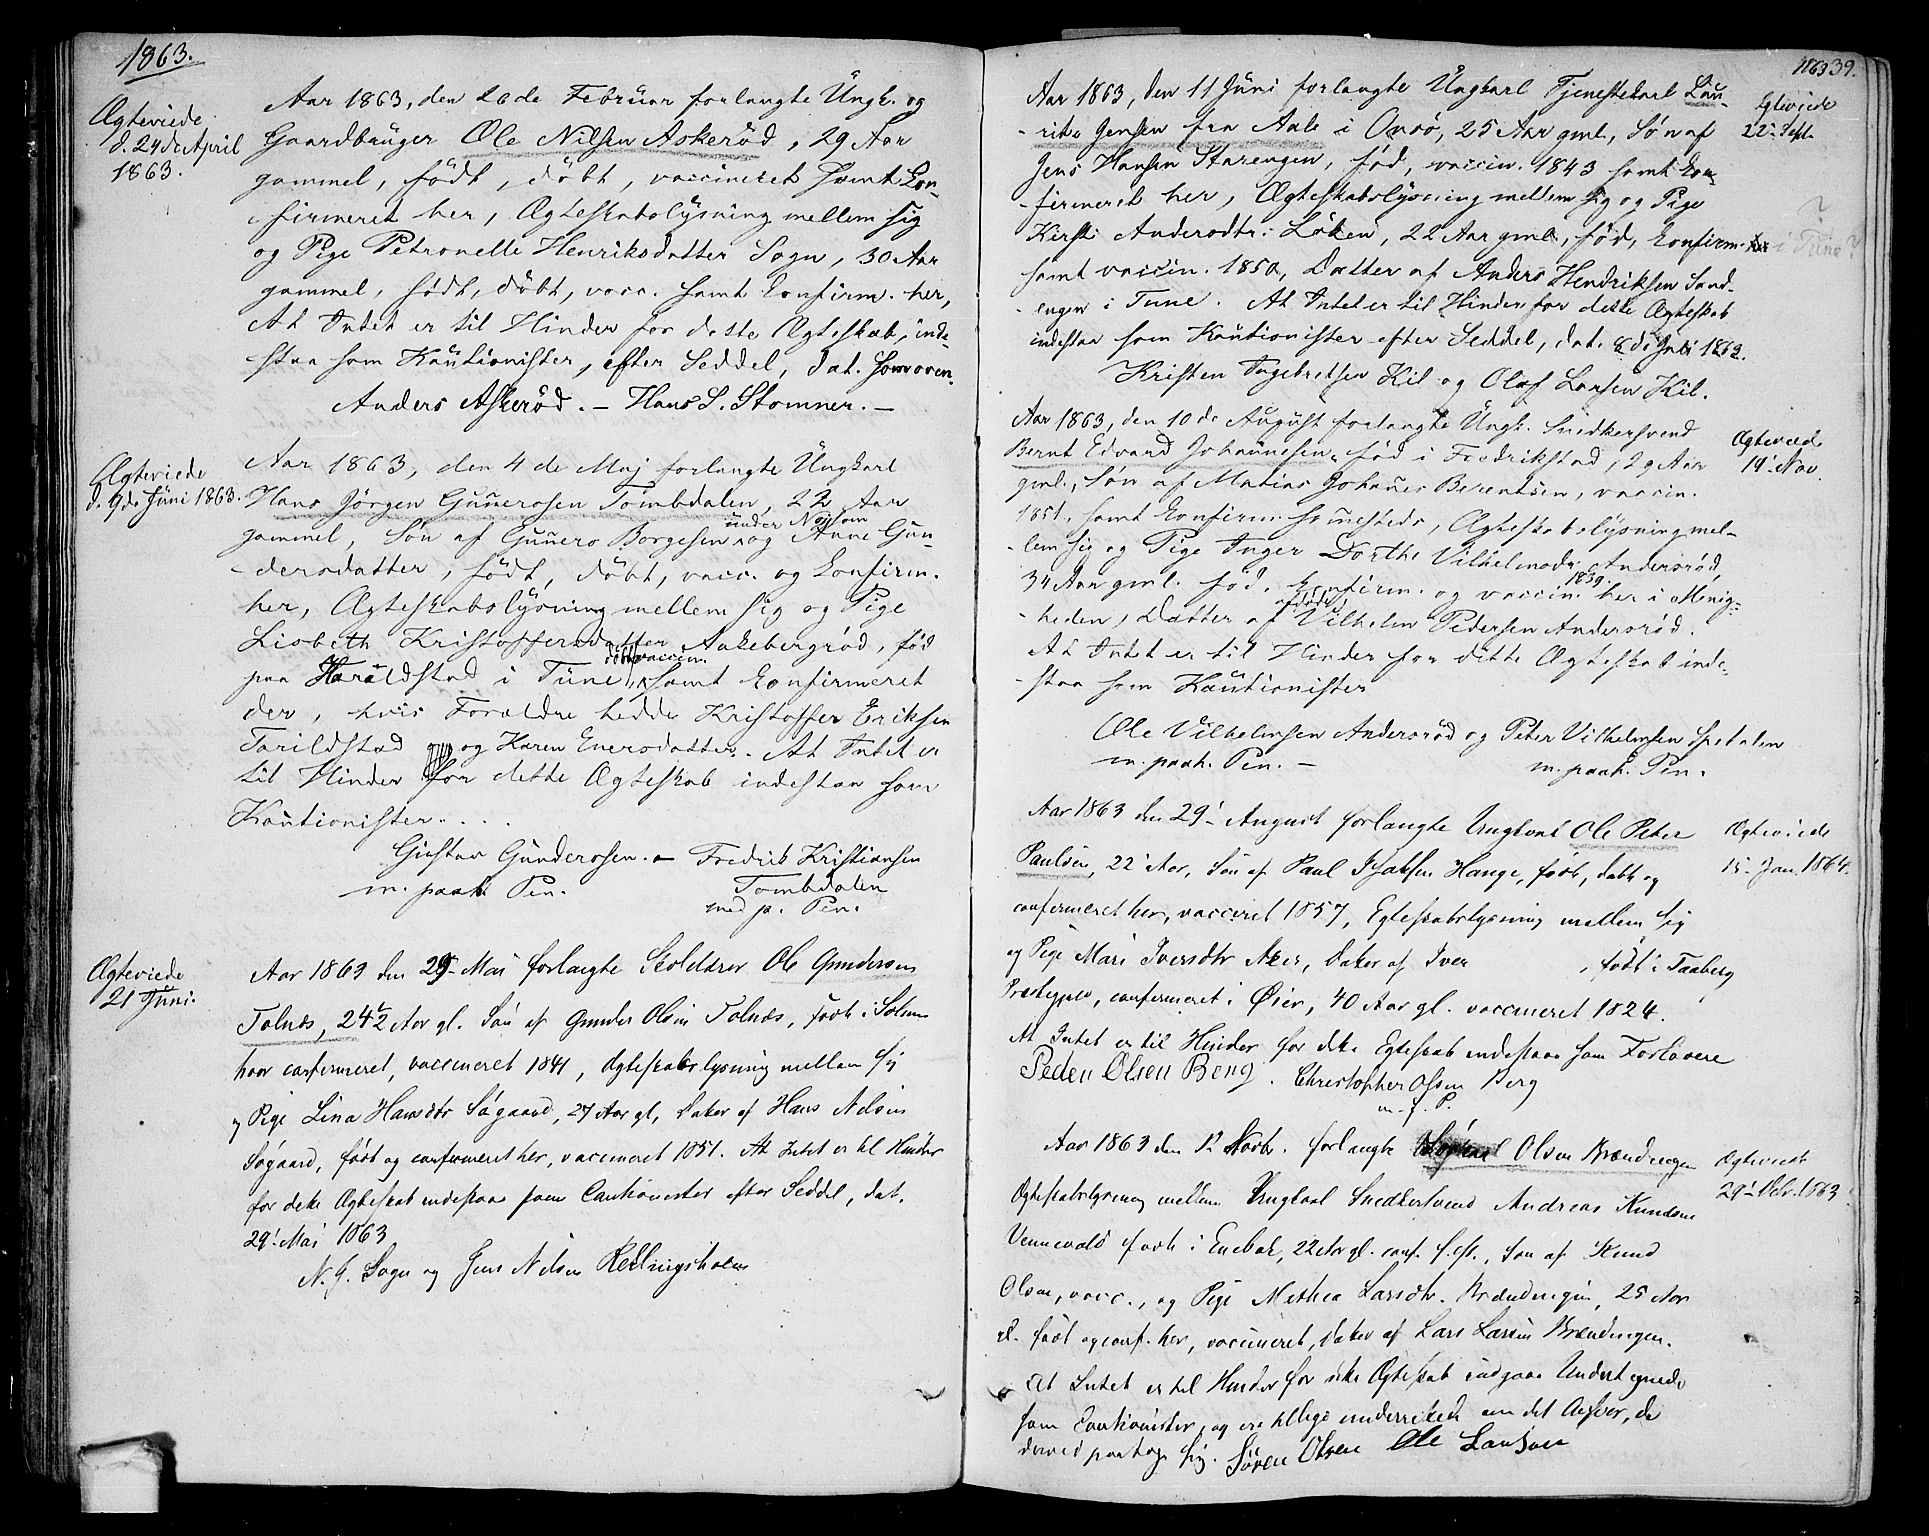 1863.
Ægteviede
d. 24de April
1863.
Aar 1863, den 26de Februar forlangte Ungk. og
Gaardbruger Ole Nilsen Askerød, 29 Aar
gammel, født, döbt, vaccineret samt Con-
firmeret her, Ægteskabslysning mellem sig
og Pige Petronelle Henriksdatter Sogn, 30 Aar
gammel, født, döbt, vacc. samt Confirm. her,
At Intet er til Hinder for dette Ægteskab, inde-
staa som Kautionister, efter Seddel, dat. som oven.
Anders Askerød. — Hans S. Stomner. —
Ægteviede
d. 9de Juni 1863.
Aar 1863, den 4de Maj forlangte Ungkarl
Hans Jörgen Gunerosen Tombdalen, 22 Aar
gammel, Søn af Guneros Borgesen og Anne Gun-
dersdatter, født, döbt, vacc. og Confirm.
her, Ægteskabslysning mellem sig og Pige
Lisbeth Kristoffersdatter Aakebergrød, fød
paa Haraldstad i Tune, döbt, vaccin. samt Confirmeret
der, hvis Forældre hedde Kristoffer Eriksen
Torildstad og Karen Enersdatter. At Intet er
til Hinder for dette Ægteskab indestaa som
Kautionister . . . .
Gustav Gunderosen. — Fredrik Kristiansen
m. paah. Pen. Tombdalen
med p. Pen.
Ægteviede
21 Juni.
Aar 1863 den 29 Mai forlangte Skolelærer Ole Gundersen
Tolnæs, 24½ Aar gl. Søn af Gunder Olsen Tolnæs, født i Solum
hvor confirmeret, vaccineret 1841, Ægteskabslysning mellem sig
og Pige Lina Hansdtr Søgaard, 27 Aar gl, Datter af Hans Nilsen
Søgaard, født og confirmeret her, vaccineret 1851. At Intet er til Hinder
for dette Ægteskab indestaar som Cautionister efter Seddel, dat.
29. Mai 1863
N. G. Sogn og Jens Nilsen Rellingsholm
1863 39.
Aar 1863, den 11 Juni forlangte Ungkarl Tjenestekarl Lau-
rits Jensen fra Aale i Onsø, 25 Aar gml, Søn af
Jens Hansen Starengen, fød, vaccin. 1843 samt Con-
firmeret her, Ægteskabslysning mellem sig og Pige
Kirsti Andersdtr: Löken, 22 Aar gml, fød, Confirm.
samt vaccin. 1850, Datter af Anders Hendriksen Sand-
engen i Tune. At Intet er til Hinder for dette Ægteskab
indestaa som Kautionister efter Seddel, dat. 8de Juli 1862.
Kristen Ingebretsen Kil og Olaf Larsen Kil.
Ægteviede
22. Sept.
?
i Tune?
Aar 1863, den 10de August forlangte Ungk. Snedkersvend
Bernt Edvard Johannesen, fød i Fredrikstad, 29 Aar
gml., Søn af Matias Johanes Berentsen, vaccin.
1851, samt Confirm. samesteds, Ægteskabslysning mel-
lem sig og Pige Inger Dorthe Vilhelmsdtr Andersrød,
34 Aar gml. fød, Confirm. og vaccin. 1839. her i Menig-
heden, Datter af afdøde Vilhelm Pedersen Andersrød.
At Intet er til Hinder for dette Ægteskab inde-
staa som Kautionister
Ole Vilhelmsen Andersrød og Peter Vilhelmsen Spetalen
m. paah. Pen. — m. paah. Pen.
Ægteviede
19. Nov
Aar 1863 den 29. August forlangte Ungkarl Ole Peter
Paulsen, 22 Aar, Søn af Paul Isaksen Hauge, født, døbt og
confirmeret her, vacceret 1857, Egteskabslysning mellem sig
og Pige Mari Iversdtr Aker, Datter af Iver , født i Faaberg
Præstegjeld, confirmeret i Øier, 40 Aar gl. vaccineret 1824.
At Intet er til Hinder for dette Egteskab indestaar som Forlovere
Peder Olsen Berg . Christopher Olsen Berg
m. f. P.
Ægteviede
15. Jan. 1864.
Aar 1863 den 12 Novbr. forlangte Olsen Brændingen
Ægteskabslysning mellem Ungkarl Snedkersvend Andreas Knudsen
Vennevold født i Enebak, 22 Aar gl. conf. s. st., Søn af Knud
Olsen, vacc., og Pige Mathea Larsdtr. Brændingen, 25 Aar
gl. født og conf. her, vaccineret, Datter af Lars Larsen Brændingen.
At Intet er til Hinder for dette Ægteskab indgaar Undertegnede
som Cautionister, og ere tillige underrettede om det Ansvar, de
derved paatage sig. Sören Olsen Ole Larsen
Ægteviede
29. Debr. 1863